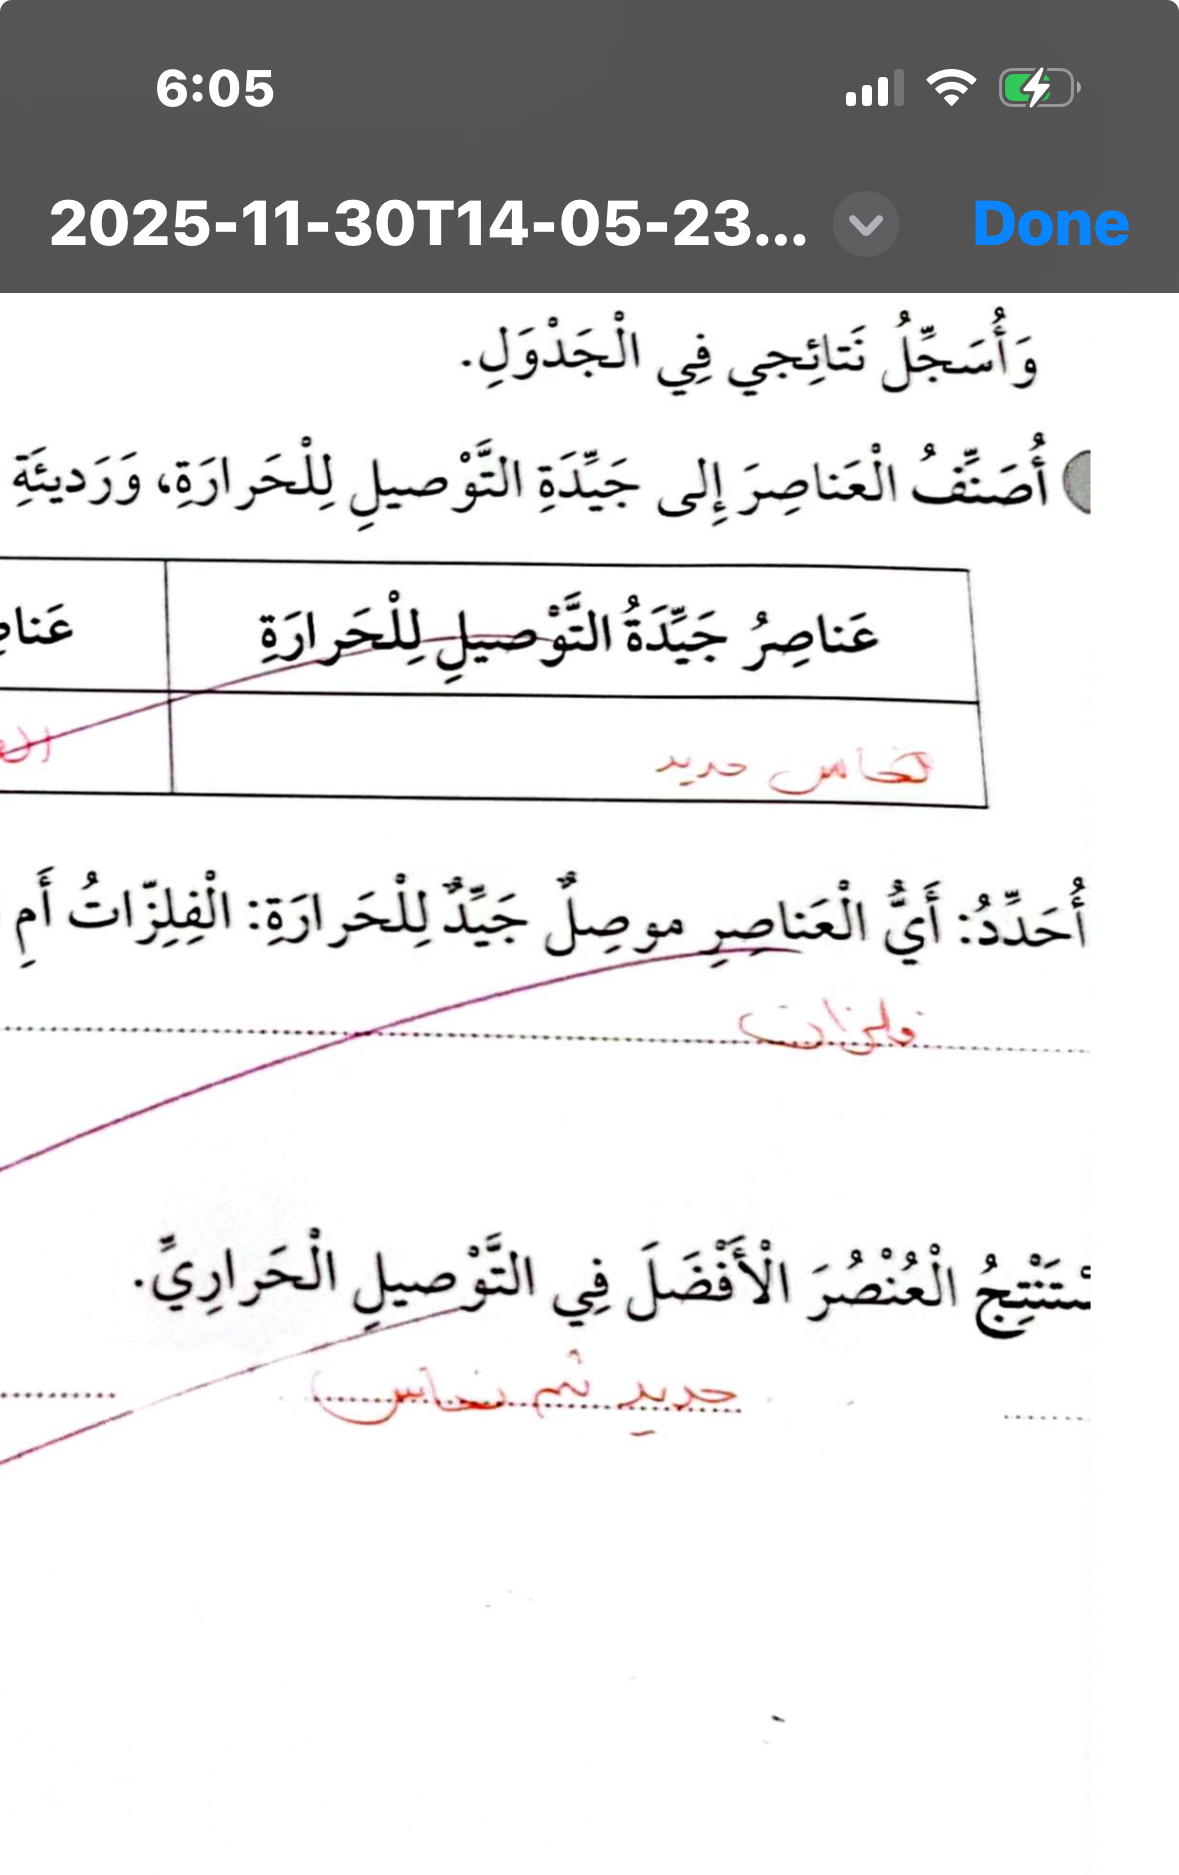 6:05
2025-11-30T14-05-23... Done
وَأُسَجِّلُ نَتائِجي فِي الْجَدْوَلِ.
أُصَنِّفُ الْعَناصِرَ إِلى جَيِّدَةِ التَّوْصيلِ لِلْحَرارَةِ، وَرَديئَةِ
عَناصِرُ جَيِّدَةُ التَّوْصيلِ لِلْحَرارَةِ
نحاس حديد
أُحَدِّدُ: أَيُّ الْعَناصِرِ موصِلٌ جَيِّدٌ لِلْحَرارَةِ: الْفِلِزّاتُ أَمِ
فلزات
سْتَنْتِجُ الْعُنْصُرَ الْأَفْضَلَ فِي التَّوْصيلِ الْحَرارِيِّ.
حديد ثم نحاس